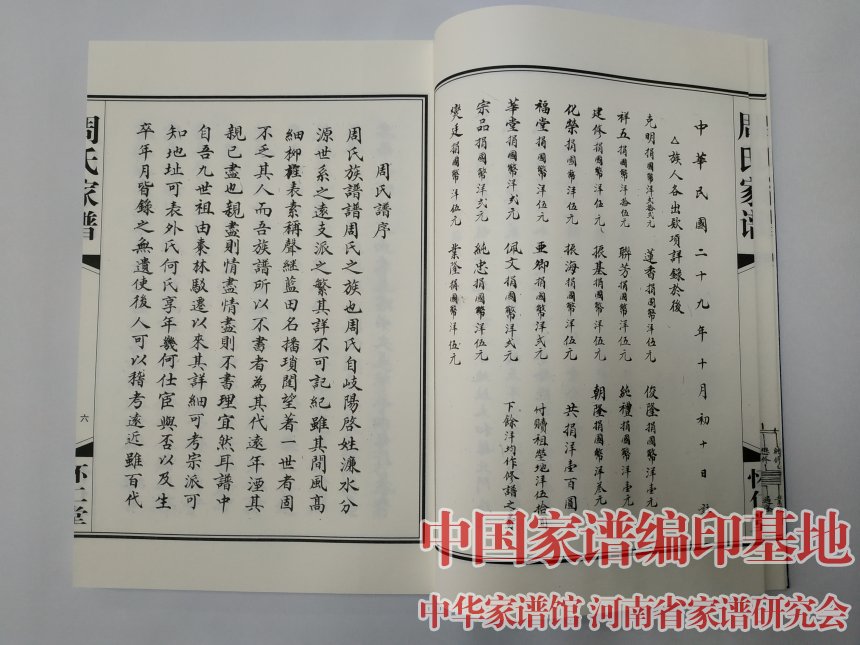 周氏家谱
中華民國二十九年十月初十日
△族人各出欵項詳錄於後
克明捐國幣洋弍拾弍元 蓮香捐國幣洋壹元 俊隆捐國幣洋壹元
祥五捐國幣洋拾伍元 聯芳捐國幣洋伍元 純禮捐國幣洋壹元
建修捐國幣洋伍元 振基捐國幣洋伍元 朝隆捐國幣洋叁元
化榮捐國幣洋伍元 振海捐國幣洋伍元 共捐洋壹百圓
福堂捐國幣洋伍元 亜卿捐國幣洋伍元 付贖祖塋地洋伍拾
華堂捐國幣洋弍元 佩文捐國幣洋弍元 下餘洋均作修譜之
宗品捐國幣洋弍元 純忠捐國幣洋伍元
爕廷捐國幣洋伍元 業隆捐國幣洋伍元
周氏譜序
周氏族譜譜周氏之族也周氏自岐陽啓姓濂水分
源世系之遠支派之繁其詳不可記紀雖其間風高
細柳樁表素稱聲継藍田名播瑣閨望著一世者固
不乏其人而吾族譜所以不書者為其代遠年湮其
親已盡也親盡則情盡情盡則不書理宜然耳譜中
自吾九世祖由棗林駁遷以來其詳細可考宗派可
知地址可表外氏何氏享年幾何仕宦與否以及生
卒年月皆錄之無遺使後人可以稽考遠近雖百代
周氏家谱
六
怀仁堂
中国家谱编印基地
中华家谱馆 河南省家谱研究会